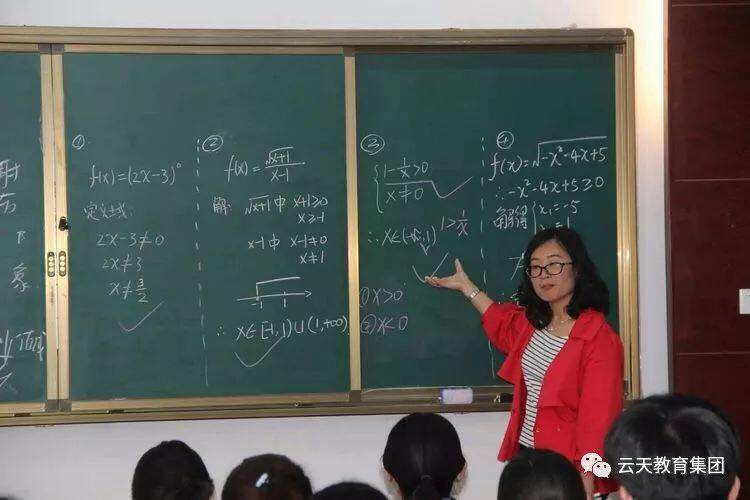 ①
f(x)=(2x-3)⁰
定义域:
2x-3≠0
2x≠3
x≠3/2
②
f(x)=√(x+1)/(x-1)
解: √(x+1)中 x+1≥0
x≥-1
x-1中 x-1≠0
x≠1
-1 1
∴ x∈[-1,1)∪(1,+∞)
③
{1-1/x>0
x≠0
1>1/x
①x>0
②x<0
④
f(x)=√(-x²-4x+5)
∴-x²-4x+5≥0
解得{x₁=-5
象
云天教育集团